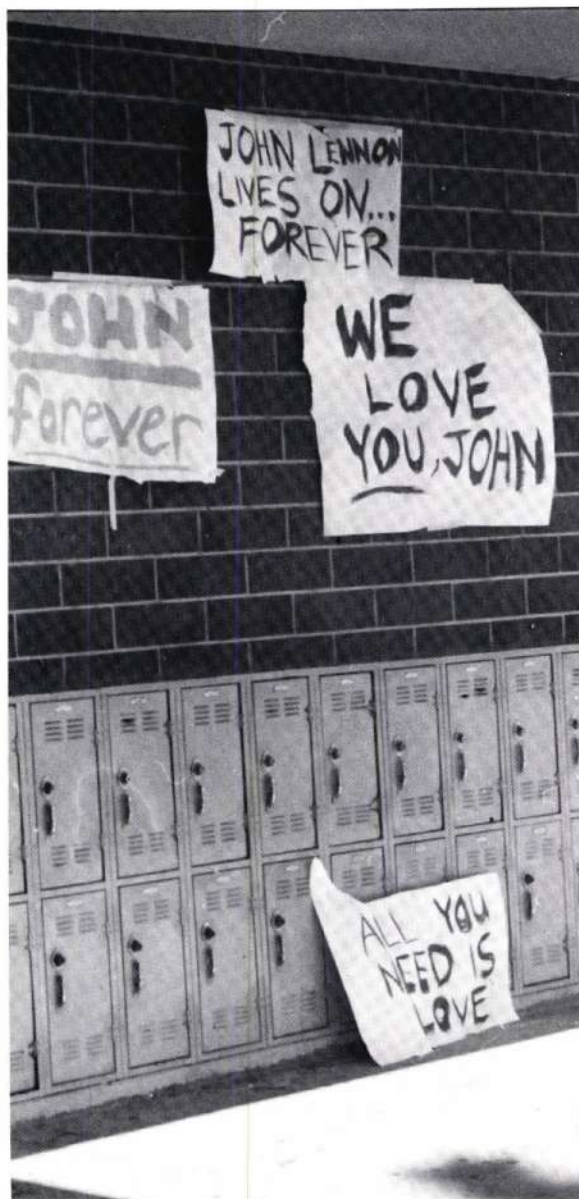 JOHN LENNON
LIVES ON...
FOREVER
JOHN
forever
WE
LOVE
YOU, JOHN
ALL YOU
NEED IS
LOVE